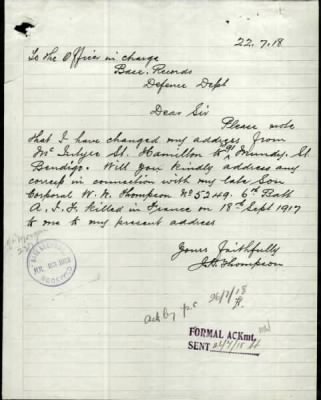 22.7.18
To the Officer in charge
Base Records
Defence Dept
Dear Sir
Please note
that I have changed my address from
McIntyre St. Hamilton to 91 Mundy St
Bendigo. Will you kindly address any
corresp in connection with my late Son
Corporal W. K. Thompson No 5249. 6th Batt
A. I. F. killed in France on 18th Sept 1917
to me to my present address
Yours Faithfully
Thompson
Ack by p.c 26/7/18
FORMAL ACKmt.
SENT 26/7/18